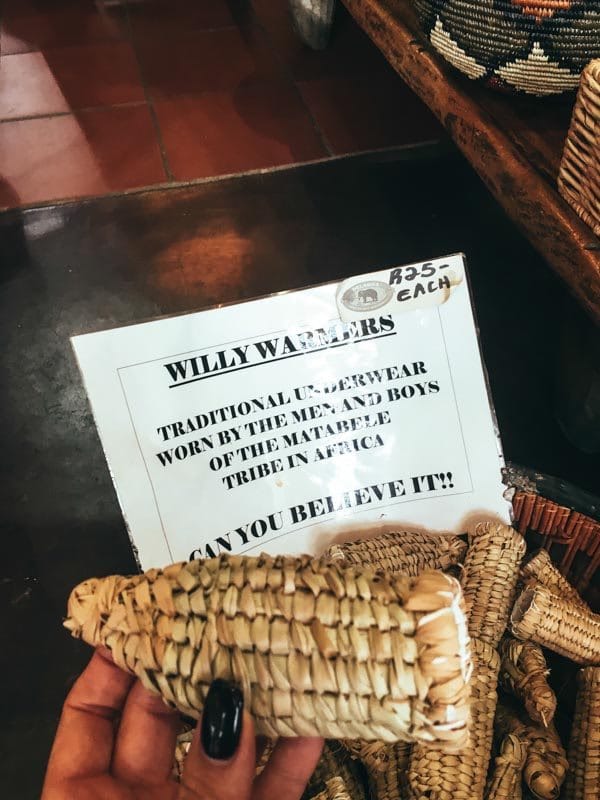 R25-
EACH
WILLY WARMERS
TRADITIONAL UNDERWEAR
WORN BY THE MEN AND BOYS
OF THE MATABELE
TRIBE IN AFRICA
CAN YOU BELIEVE IT!!